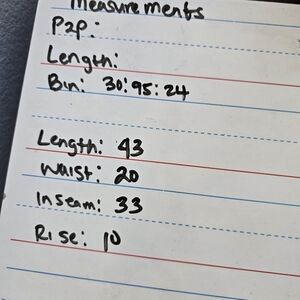 Measurements
P2P:
Length:
Bin: 30:95:24
Length: 43
Waist: 20
Inseam: 33
Rise: 10